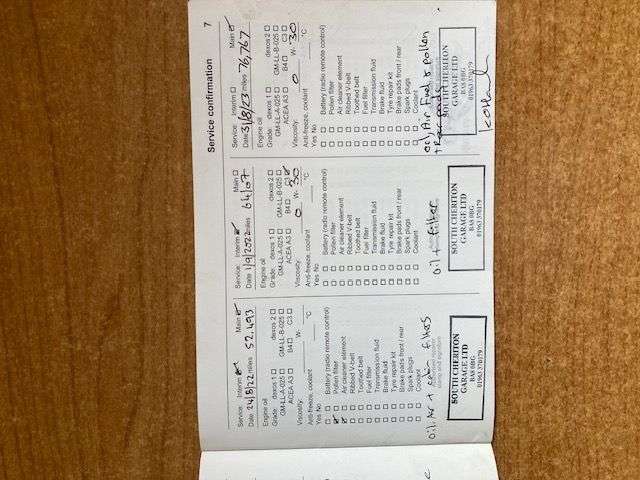 Service confirmation 7
Service: Interim Main
Date miles 52,493
Engine oil
Grade: dexos 1 dexos 2
GM-LL-A-025 GM-LL-B-025
ACEA A3 B4 C3
Viscosity: W-
Anti-freeze, coolant °C
Yes No
Battery (radio remote control)
Pollen filter
Air cleaner element
Ribbed V-belt
Toothed belt
Fuel filter
Transmission fluid
Brake fluid
Tyre repair kit
Brake pads front / rear
Spark plugs
Coolant
Oil, Air +
SOUTH CHERITON
GARAGE LTD
BA8 0BG.
01963 370179
Service: Interim Main
Date miles
Engine oil
Grade: dexos 1 dexos 2
GM-LL-A-025 GM-LL-B-025
ACEA A3 B4 C3
Viscosity: 0 W- 30
Anti-freeze, coolant °C
Yes No
Battery (radio remote control)
Pollen filter
Air cleaner element
Ribbed V-belt
Toothed belt
Fuel filter
Transmission fluid
Brake fluid
Tyre repair kit
Brake pads front / rear
Spark plugs
Coolant
oil + filter
SOUTH CHERITON
GARAGE LTD
BA8 0BG.
01963 370179
Service: Interim Main
Date 31/8/23 miles 76,767
Engine oil
Grade: dexos 1 dexos 2
GM-LL-A-025 GM-LL-B-025
ACEA A3 B4 C3
Viscosity: 0 W- 30
Anti-freeze, coolant °C
Yes No
Battery (radio remote control)
Pollen filter
Air cleaner element
Ribbed V-belt
Toothed belt
Fuel filter
Transmission fluid
Brake fluid
Tyre repair kit
Brake pads front / rear
Spark plugs
Coolant
oil, Air Fuel & pollen
SOUTH CHERITON
GARAGE LTD
BA8 0BG.
01963 370179